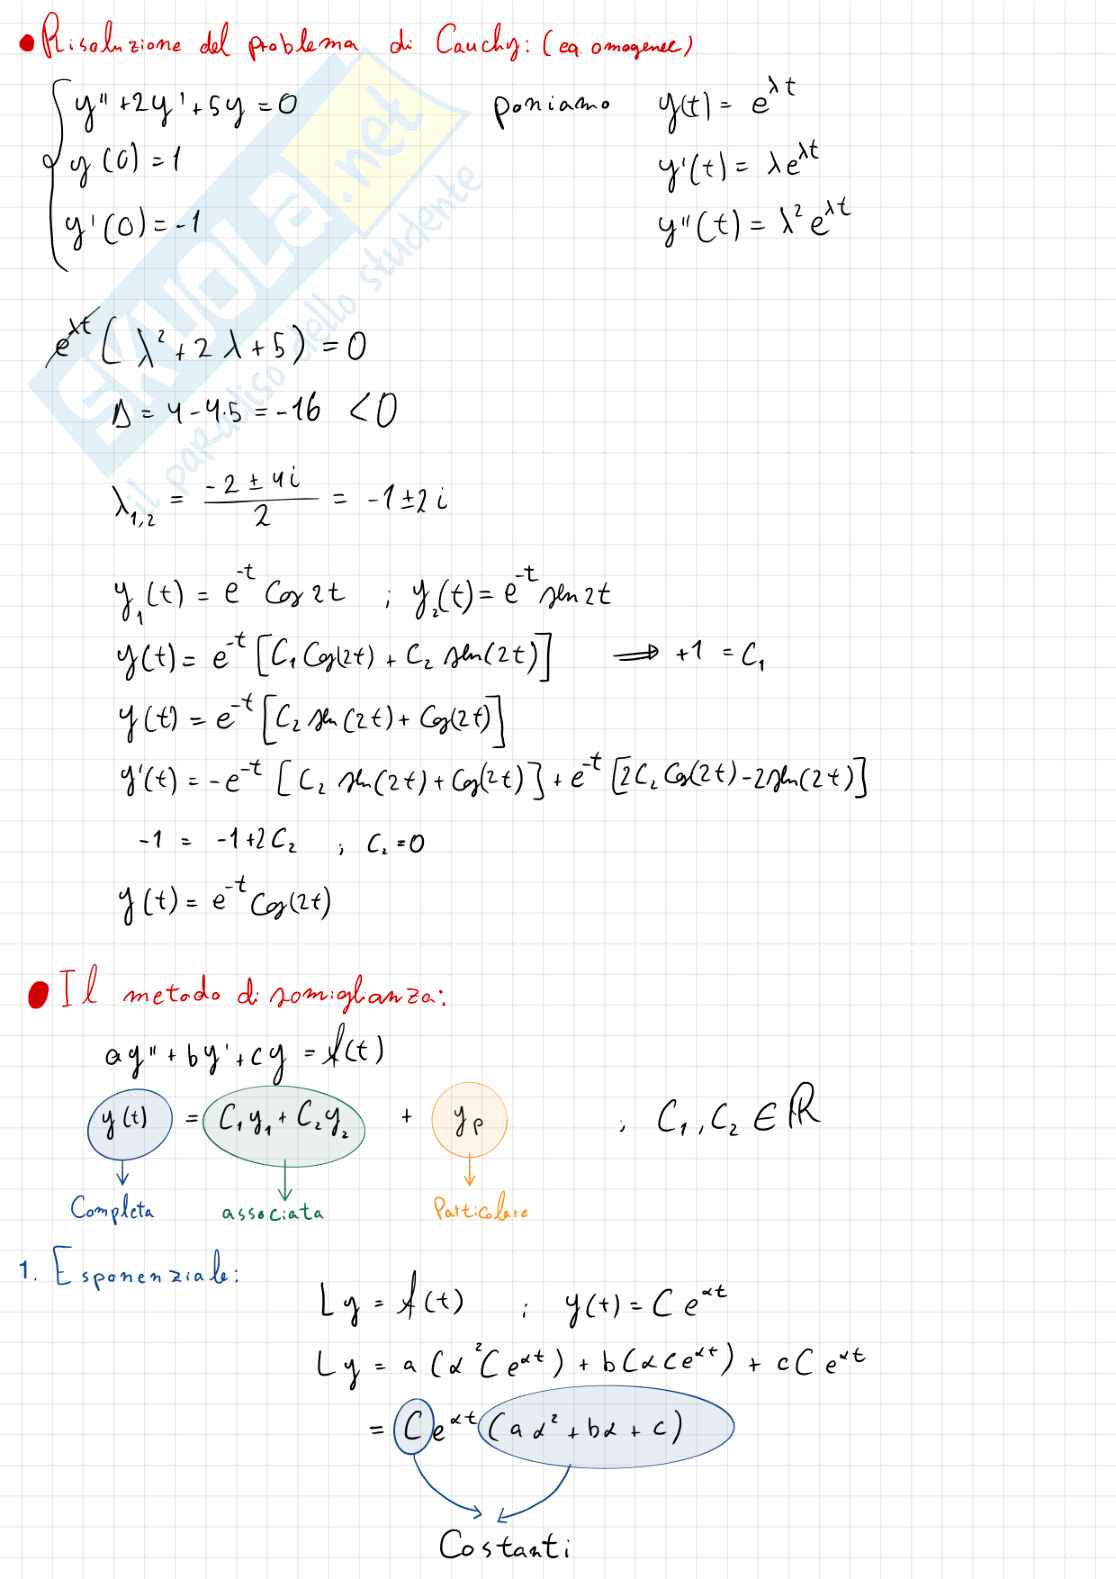 ● Risoluzione del problema di Cauchy: (eq. omogenee)
y'' + 2y' + 5y = 0 poniamo y(t) = e^λt
y(0) = 1 y'(t) = λe^λt
y'(0) = -1 y''(t) = λ² e^λt
e^λt (λ² + 2λ + 5) = 0
Δ = 4 - 4·5 = -16 < 0
λ₁,₂ = (-2 ± 4i)/2 = -1 ± 2i
y₁(t) = e^-t Cos 2t ; y₂(t) = e^-t sen 2t
y(t) = e^-t [C₁ Cos(2t) + C₂ sen(2t)] ⟹ +1 = C₁
y(t) = e^-t [C₂ sen(2t) + Cos(2t)]
y'(t) = -e^-t [C₂ sen(2t) + Cos(2t)] + e^-t [2C₂ Cos(2t) - 2sen(2t)]
-1 = -1+2C₂ ; C₂ = 0
y(t) = e^-t Cos(2t)
● Il metodo di somiglianza:
ay'' + by' + cy = f(t)
y(t) = C₁y₁ + C₂y₂ + yₚ ; C₁, C₂ ∈ ℝ
Completa associata Particolare
1. Esponenziale:
Ly = f(t) ; y(t) = C e^αt
Ly = a(α² C e^αt) + b(α C e^αt) + cC e^αt
= C e^αt (aα² + bα + c)
Costanti
SKUOLA.net
il paradiso dello studente